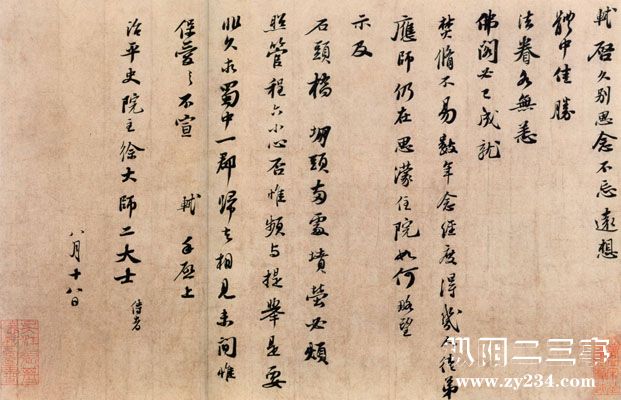 軾啓久別思念不忘遠想
體中佳勝
法眷各無恙
佛閣必已成就
焚脩不易數年念經度得幾人徒弟
應師仍在思濛住院如何略望
示及
石頭橋堋頭兩處墳塋必煩
照管程六小心否惟頻與提舉是要
非久求蜀中一郡歸去相見未間惟
保愛之不宣 軾手啓上
治平史院主徐大師二大士 侍者
八月十八日
枞阳二三事
www.zy234.com